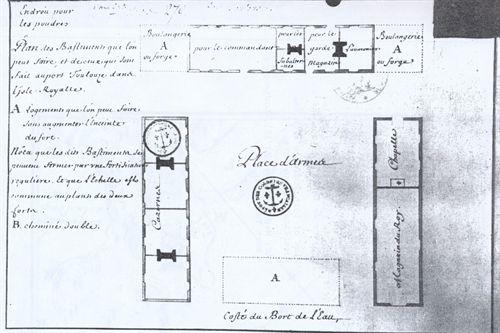 Endroit pour
les poudres
Plan des Bastiments que lon
peut faire et de ceux qui sont
fait au port Toulouze dans
Lisle Royalle
A Logements que lon peut faire
sans augmenter L'Enceinte
du fort.
Nota que les dits Bastiments se
peuvent fermer par une fortification
reguliere. Et que L'Echelle est
commune au plans des deux
forts
B. cheminé double.
Boulangerie
A
ou forge
pour le commandant
pour les
Subalter-
nes
pour le
garde
Magazin
L'aumonier
Boulangerie
A
ou forge
Cazernes
Place d'Armes
Chapelle
Magazin du Roy
A
Costé du Bort de L'Eau,